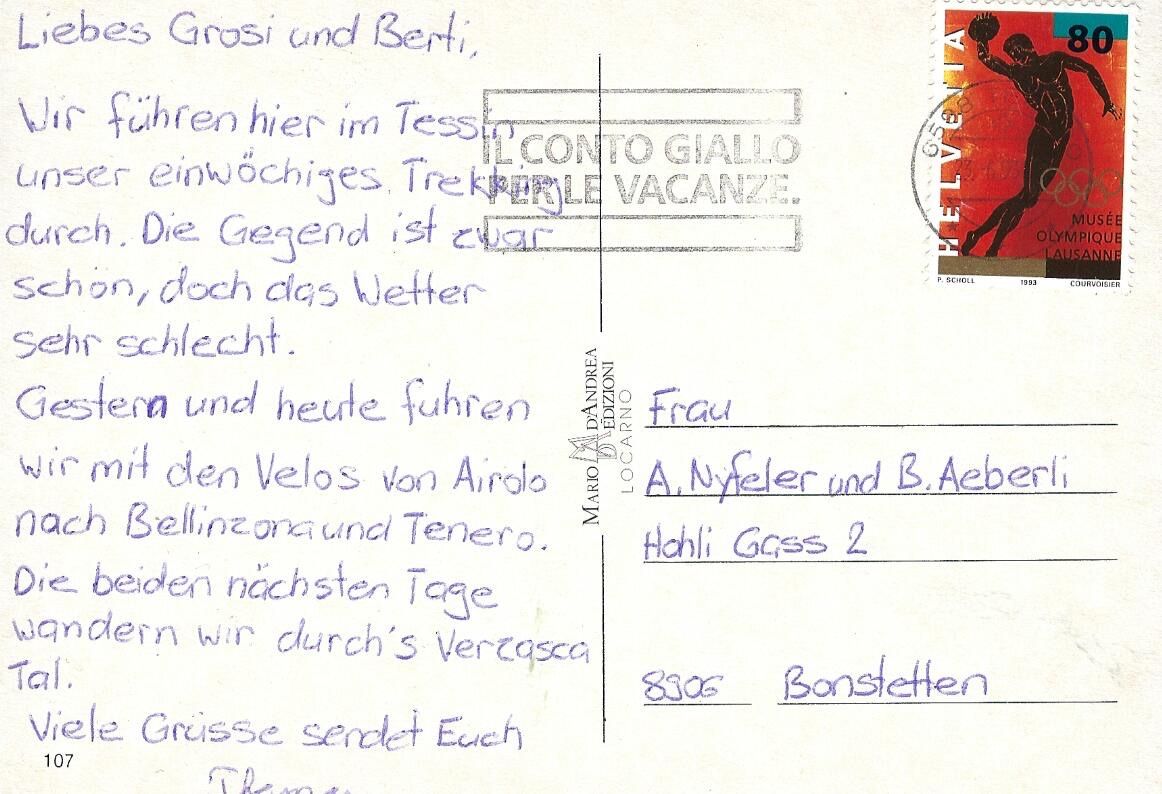 Liebes Grosi und Berti,
Wir führen hier im Tessin
unser einwöchiges Trekking
durch. Die Gegend ist zwar
schön, doch das Wetter
sehr schlecht.
Gestern und heute fuhren
wir mit den Velos von Airolo
nach Bellinzona und Tenero.
Die beiden nächsten Tage
wandern wir durch's Verzasca
Tal.
Viele Grüsse sendet Euch
107
IL CONTO GIALLO
PER LE VACANZE.
80
HELVETIA
MUSÉE
OLYMPIQUE
LAUSANNE
P. SCHOLL 1993 COURVOISIER
MARIO D'ANDREA
EDIZIONI
LOCARNO
Frau
A. Nyfeler und B. Aeberli
Hohli Gass 2
8906 Bonstetten